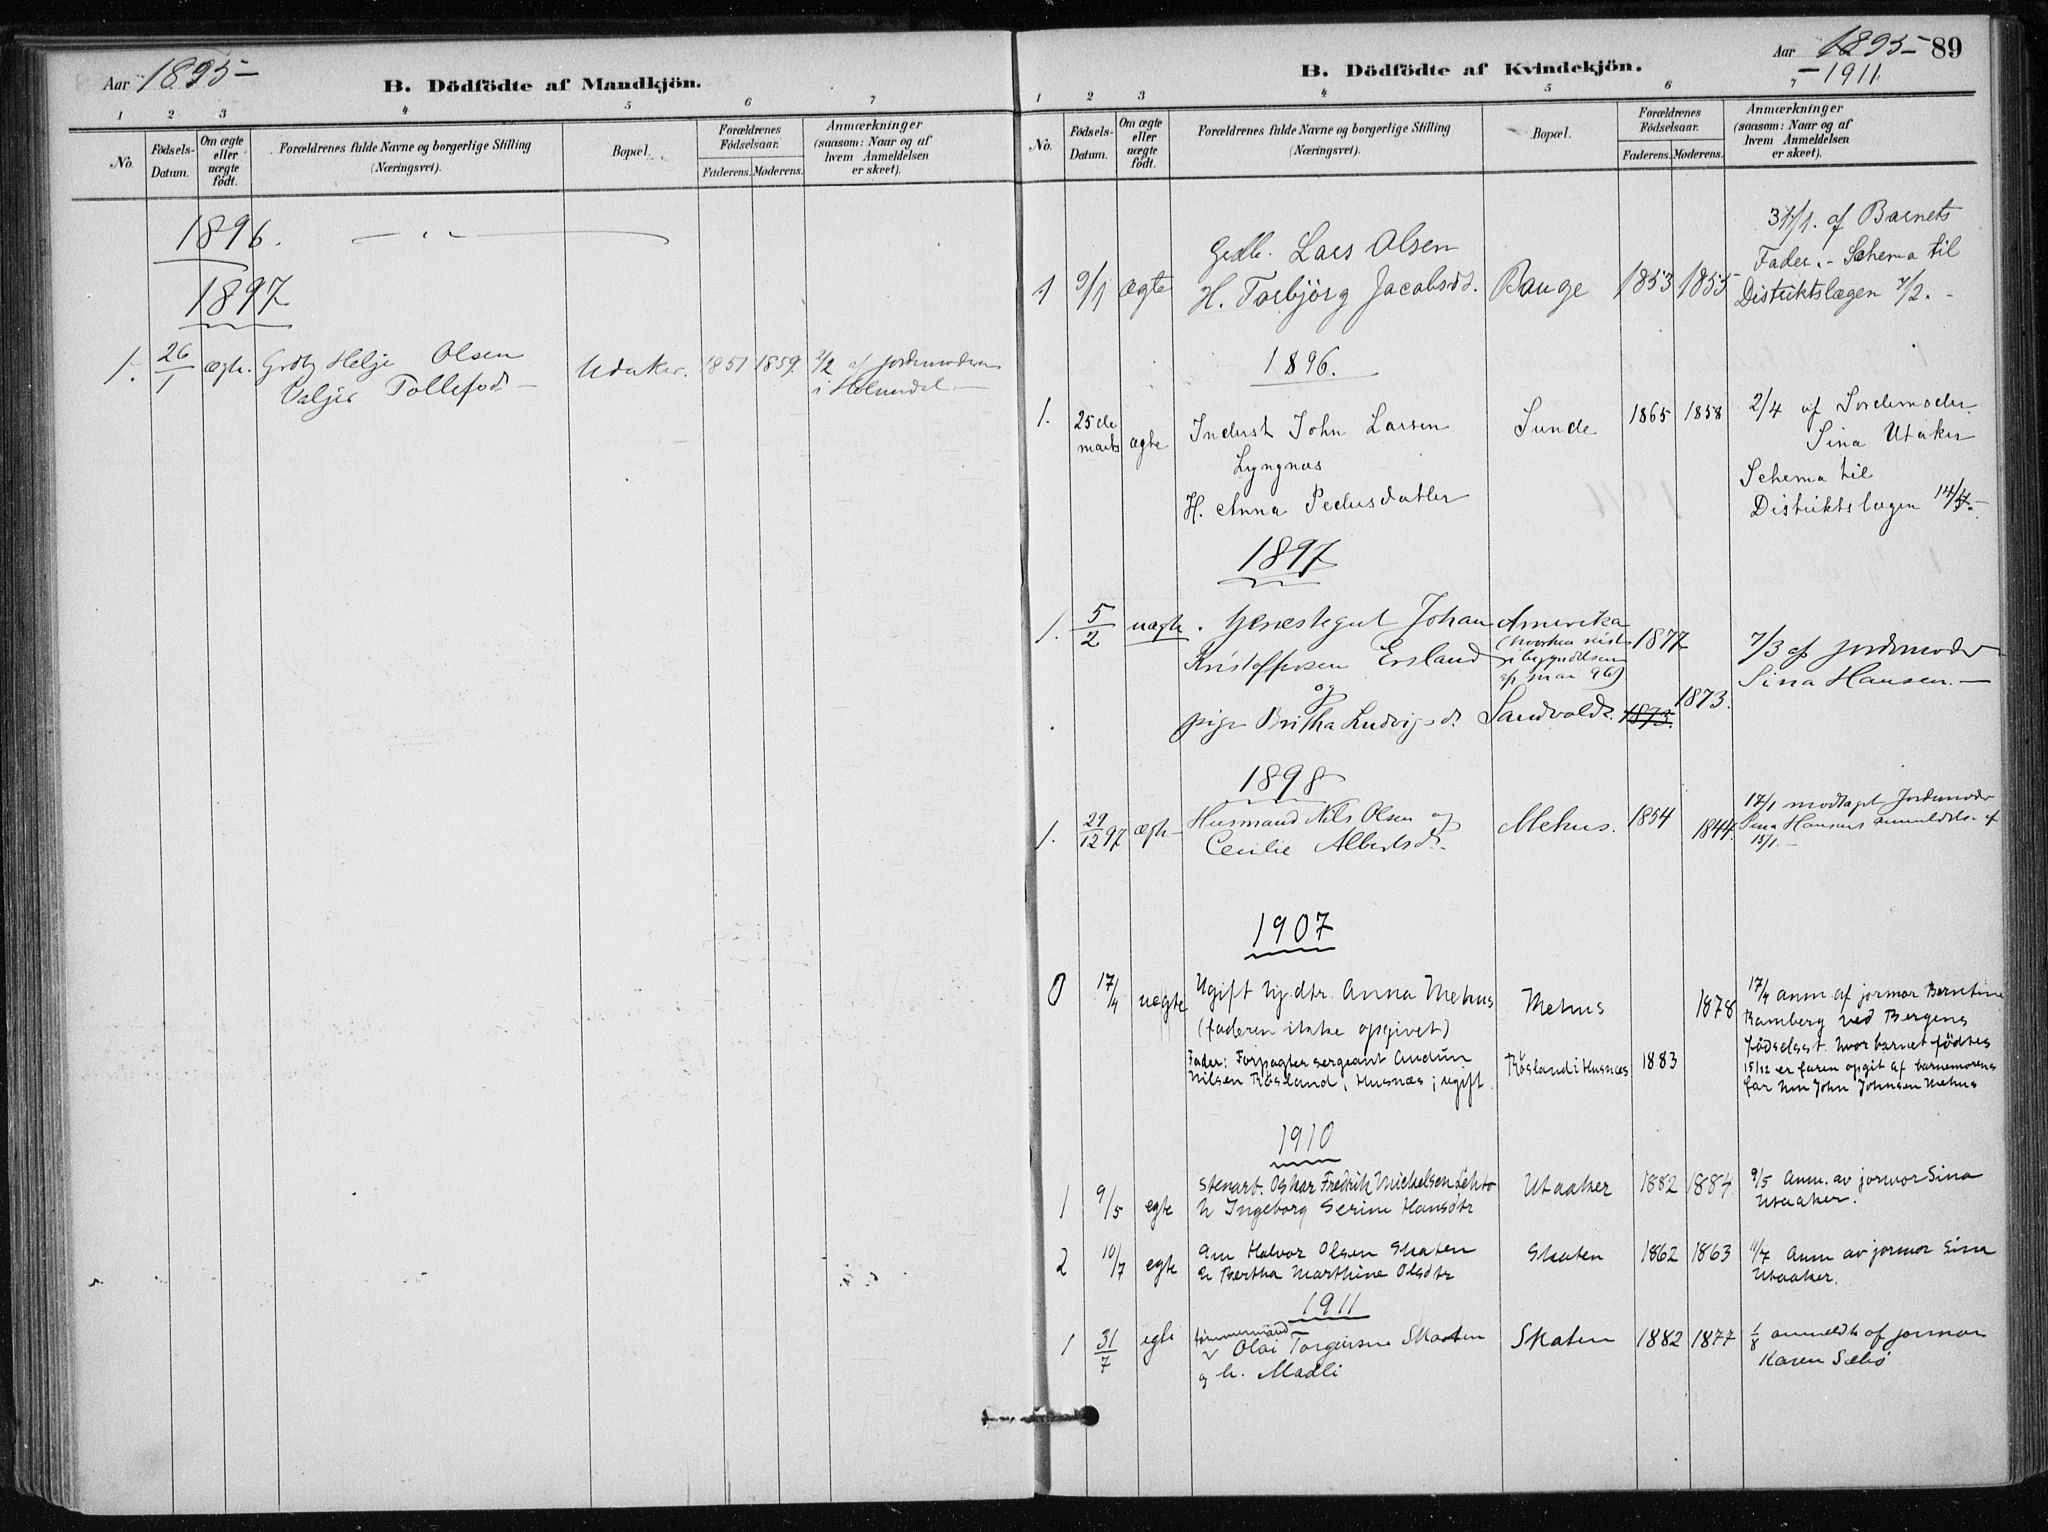 Aar 1895-
B. Dödfödte af Mandkjön.
1 2 3 4 5 6 7
No.
Födsels-Datum.
Om ægte eller uægte födt.
Forældrenes fulde Navne og borgerlige Stilling
(Næringsvei).
Bopæl.
Forældrenes Födselsaar.
Faderens. Moderens.
Anmærkninger
(saasom: Naar og af
hvem Anmeldelsen
er skeet).
1896. — " —
1897
1. 26/1 ægte. Grdbr Helje Olsen Utaker. 1851 1859. 2/2 af jordemoderen
Valjer Tollefsd. i Holmedal
Aar 1895- 89
-1911.
B. Dödfödte af Kvindekjön.
1 2 3 4 5 6 7
No.
Födsels-Datum.
Om ægte eller uægte födt.
Forældrenes fulde Navne og borgerlige Stilling
(Næringsvei).
Bopæl.
Forældrenes Födselsaar.
Faderens. Moderens.
Anmærkninger
(saasom: Naar og af
hvem Anmeldelsen
er skeet).
31/1. af Barnets
Grdb. Lars Olsen Fader. - Schema til
1 9/1 Ægte H. Torbjörg Jacobsdt. Bauge 1853 1855 Distriktslægen /2. -
1896.
1. 25de marts ægte Inderst John Larsen Sunde 1865 1858 2/4 af Jordemoder
Lyngnæs Sina Utaker
Schema til
H. Anna Pedersdatter Distriktslægen 14/4.-
1897
1. 5/2 uægte. Tjenestegut Johan Amerika
(hvorhen reist 1877 7/3 af jordemoder
Kristoffersen Ersland i begyndelsen
af mai 96) Sina Hansen. -
og
pige Britha Ludvigsd. Sandvold. 1873. 1873.
1898
1. 29/12 97 ægte Husmand Nils Olsen og Mehus. 1854 1844. 17/1 modtaget Jordemoder
Cecilie Albertsd. Sina Hansens anmeldelse af
15/1.-
1907
0 17/4 uægte Ugift hj.dtr. Anna Mehus Mehus 1878 17/4 anm. af jormor Berntine
(faderen ikke opgivet) Ramberg ved Bergens
fødselsst. hvor barnet fødtes
Fader: Forpagter sergeant Audun Røsland i Husnæs 1883 15/12 er faren opgit af barnemorens
Nilsen Røsland, Husnæs; ugift. far John Johnsen Mehus
1910
1 9/5 egte Stenarb. Oskar Fredrik Mickelsen Lehto Utaaker 1882 1884 9/5 Anm. av jormor Sina
h Ingeborg Serine Hansdtr Utaaker.
2 10/7 egte Gm Halvor Olsen Skaten Skaten 1862 1863 11/7 Anm av jormor Sina
h Bertha Marthine Olsdtr Utaaker.
1911
1 31/7 egte tømmermand Skaten 1882 1877 1/8 anmeldt af jormor
Olai Torgeirsen Skaten Karen Sæbø
og h. Madli